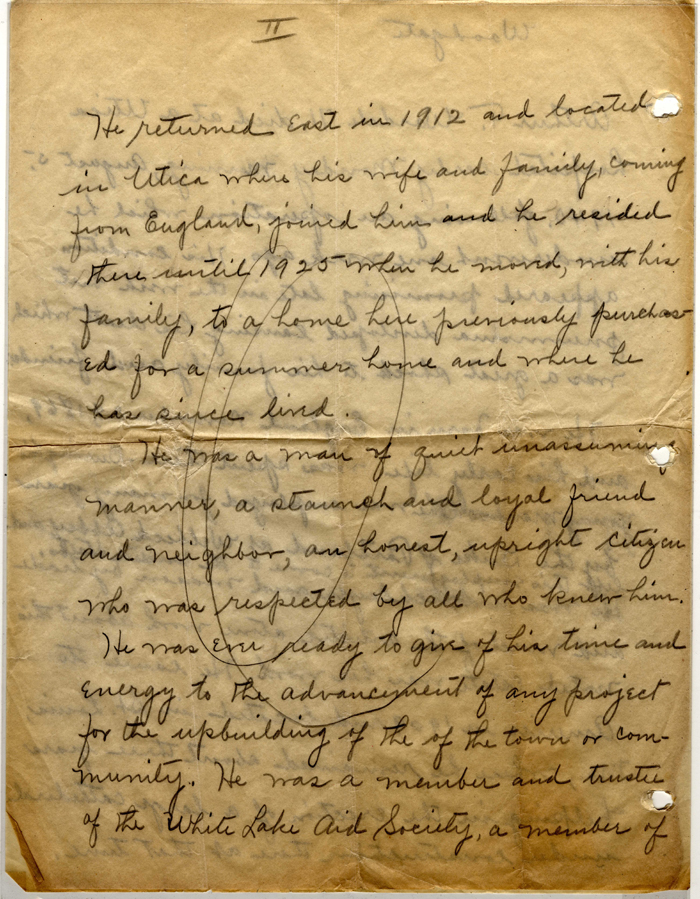 II
He returned East in 1912 and located
in Utica where his wife and family, coming
from England, joined him and he resided
there until 1925 when he moved, with his
family, to a home here previously purchas-
ed for a summer home and where he
has since lived.
He was a man of quiet unassuming
manner, a staunch and loyal friend
and neighbor, an honest, upright citizen
who was respected by all who knew him.
He was ever ready to give of his time and
energy to the advancement of any project
for the upbuilding of the of the town or com-
munity. He was a member and trustee
of the White Lake Aid Society, a member of